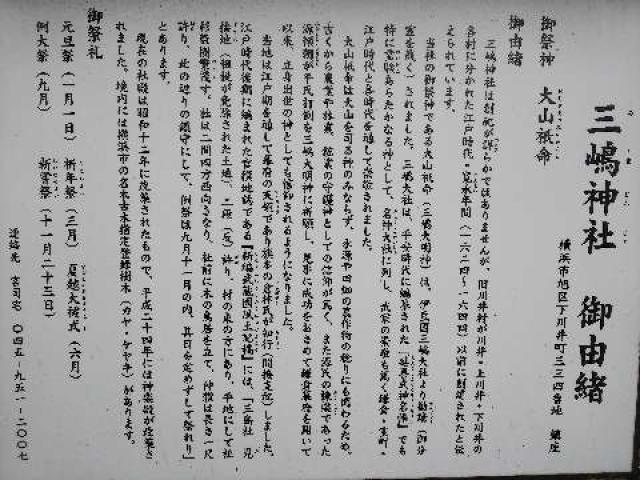 三嶋神社 御由緒
横浜市旭区下川井町二三四番地 鎮座
御祭神 大山祇命
御由緒
三嶋神社は創祀が詳らかではありませんが、旧川井村が川井・上川井・下川井の
各村に分かれた江戸時代・寛永年間(一六二四〜一六四四)以前に創建されたと伝
えられています。
当社の御祭神である大山祇命(三嶋大明神)は、伊豆国三嶋大社より勧請(御分
霊を戴く)されました。三嶋大社は、平安時代に編纂された『延喜式神名帳』でも
特に霊験あらたかなる神として、名神大社に列し、武家の崇敬も篤く鎌倉・室町・
江戸時代と各時代を通して崇敬されました。
大山祇命は大山を司る神のみならず、水源や四畑の農作物の稔りにも関わるため、
古くから農業や林業、鉱業の守護神としての信仰が篤く、また源氏の棟梁であった
源頼朝が平氏打倒を三嶋大明神に祈願し、見事に成功をおさめて鎌倉幕府を開いて
以来、立身出世の神としても信仰されるようになりました。
当地は江戸期を通して幕府の天領であり旗本の倉林氏が知行(間接支配)しました。
江戸時代後期に編まれた官撰地誌である『新編武蔵国風土記稿』には、「三島社 見
捨地(租税が免除された土地)、二段(反)許り、村の東の方にあり、平地にして社
移祭樹繁茂す。社は二間四方西向きなり、社前に木の鳥居を立て、神体は長さ一尺
許り、此の辺りの鎮守にして、例祭は九月十一月の内、其日を定めずして祭れり」
とあります。
現在の社殿は昭和十二年に改築されたもので、平成二十四年には神楽殿が改築さ
れました。境内には横浜市の名木古木指定登録樹木(カヤ・ケヤキ)があります。
御祭礼
元旦祭(一月一日) 祈年祭(三月) 夏越大祓式(六月)
例大祭(九月) 新嘗祭(十一月二十三日)
連絡先 宮司宅 〇四五-九五一-二〇〇七